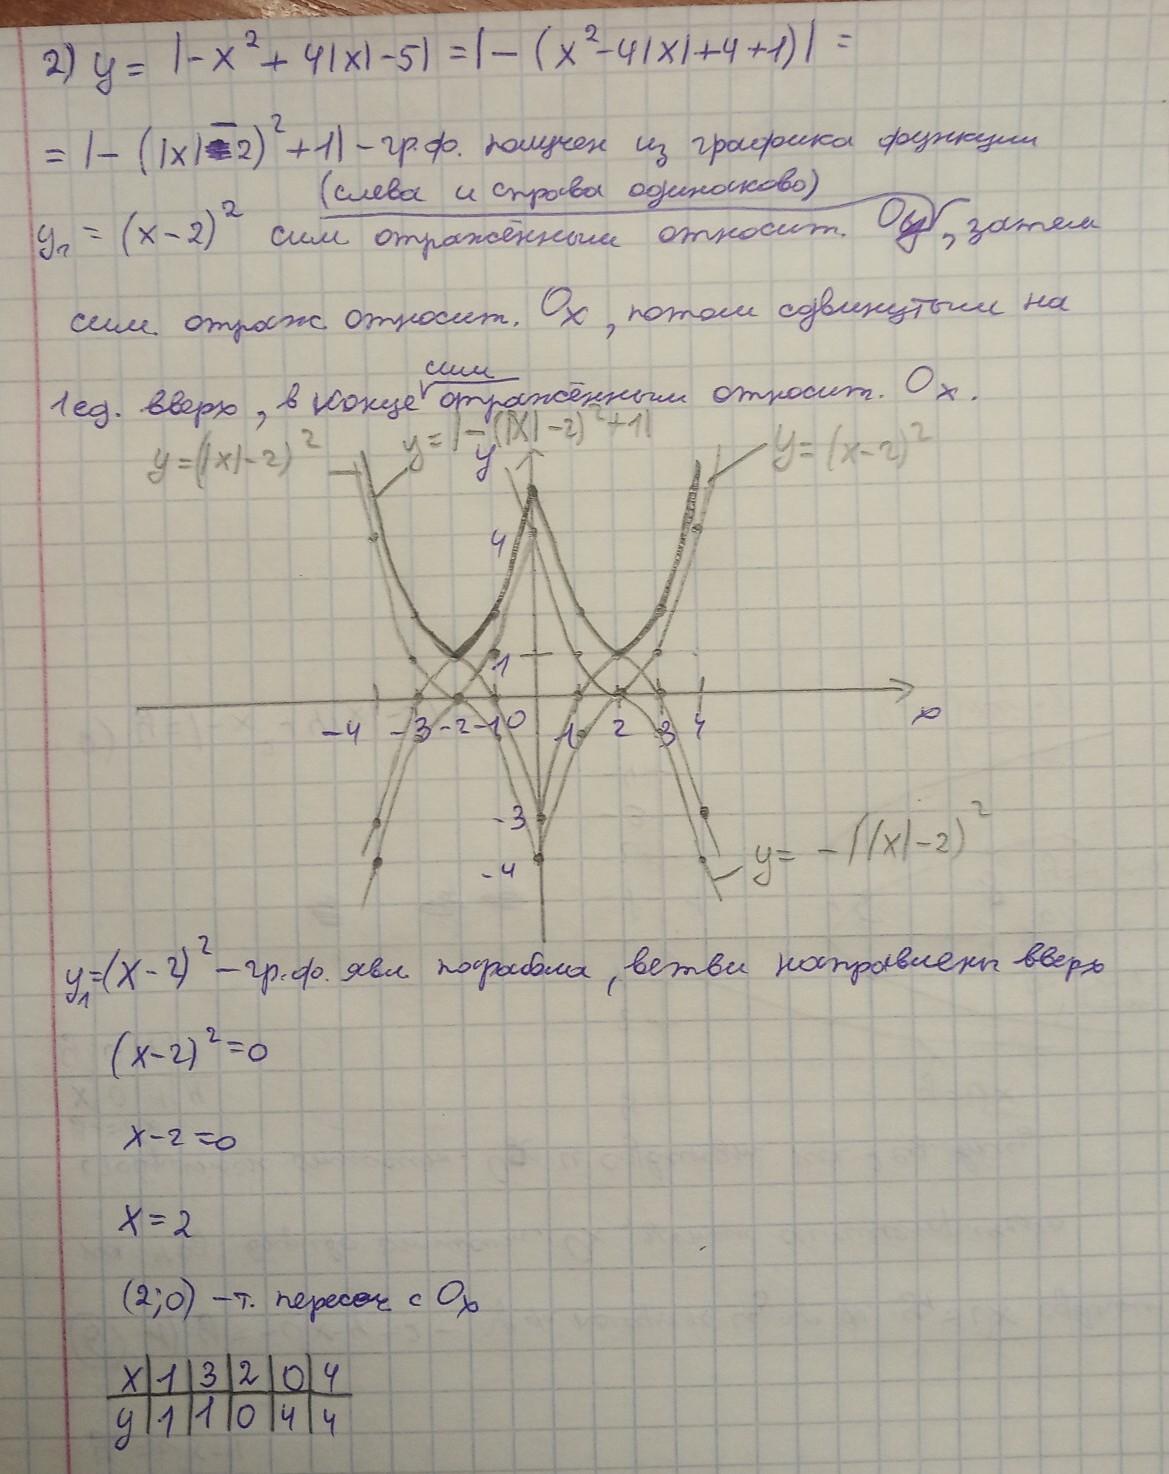 2) y = |-x² + 4|x| - 5| = |-(x² - 4|x| + 4 + 1)| =
= |-(|x| - 2)² + 1| - гр.ф. получен из графика функции
(слева и справа одинаково)
y₁ = (x-2)² сим отражённым относит. Oy, затем
сим. отраж. относит. Ox, потом сдвинутым на
1 ед. вверх, в конце сим отражённым относит. Ox.
y = (|x|-2)² y = |-(|x|-2)² + 1| y = (x-2)²
y
4
1
-4 -3 -2 -1 0 1 2 3 4 x
-3
-4
y = -(|x|-2)²
y₁ = (x-2)² - гр.ф. явл парабола, ветви направлены вверх
(x-2)² = 0
x-2 = 0
x = 2
(2;0) - т. пересеч с Ox
x | 1 | 3 | 2 | 0 | 4
y | 1 | 1 | 0 | 4 | 4